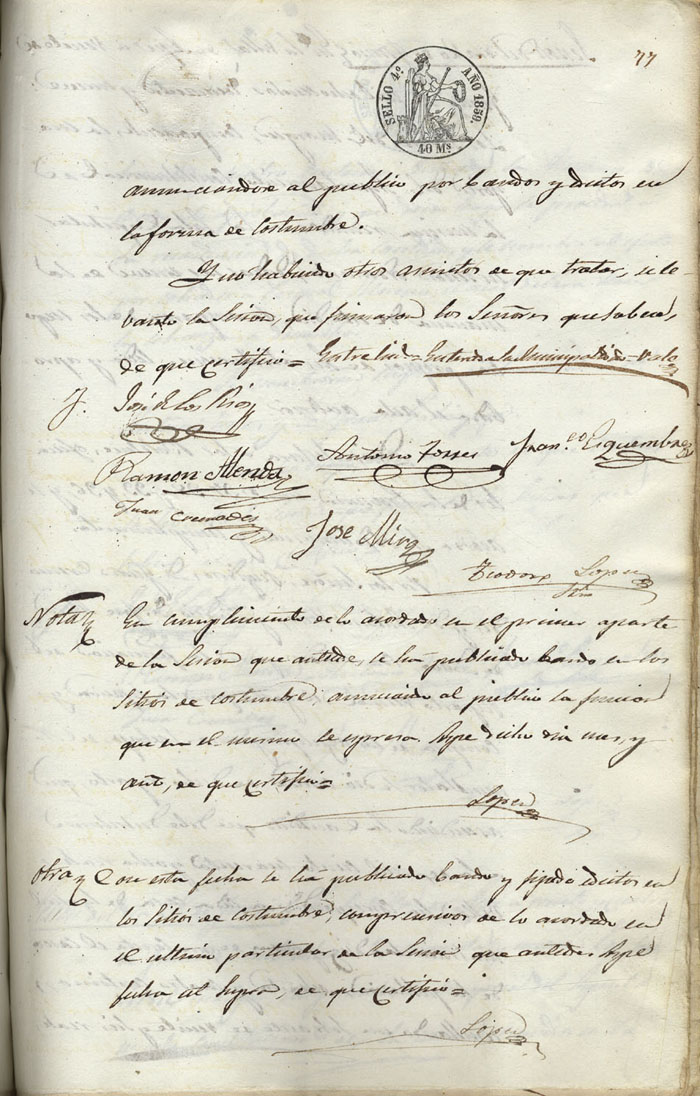 77
SELLO 4º AÑO 1850.
40 Ms
anunciándose al publico por bandos y edictos en
la forma de costumbre.
Y no habiendo otros asuntos de que tratar, se le
vantó la Sesion, que firmaron los Señores que saben,
de que certifico = Entre lin.s = = Vale
José de los Rios
Antonio Torres
Juan Esquembre
Ramon Alenda
Juan Cremades
Jose Mira
Teodoro Lopez
Srio
Nota
En cumplimiento de lo acordado en el primer aparte
de la Sesion que antede, se ha publicado bando en los
sitios de costumbre, anunciando al publico la funcion
que en el mismo se espresa. Aspe dicho dia mes, y
año, de que certifico =
Lopez
Otra
Con esta fecha se ha publicado bando y fijado edictos en
los sitios de costumbre, comprensivos de lo acordado en
el ultimo particular de la Sesion que antede. Aspe
fecha ut supra, de que certifico =
Lopez